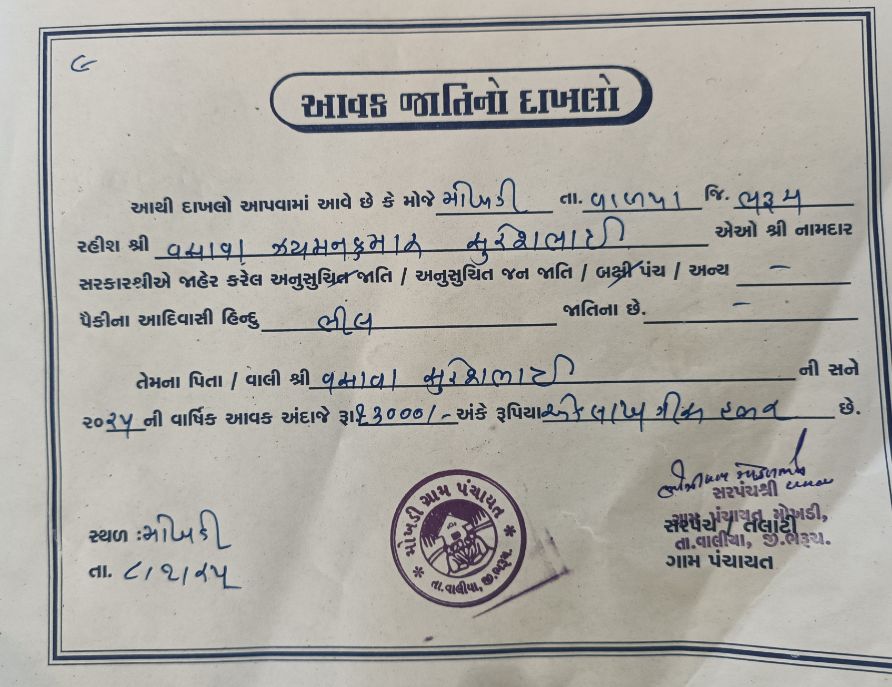 આવક જાતિનો દાખલો
આથી દાખલો આપવામાં આવે છે કે મોજે મોખડી તા. વાલીયા જિ. ભરૂચ
રહીશ શ્રી વસાવા સુરેશભાઈ એઓ શ્રી નામદાર
સરકારશ્રીએ જાહેર કરેલ અનુસુચિત જાતિ / અનુસુચિત જન જાતિ / બક્ષી પંચ / અન્ય –
પૈકીના આદિવાસી હિન્દુ ભીલ જાતિના છે. –
તેમના પિતા / વાલી શ્રી વસાવા સુરેશભાઈ ની સને
૨૦૨૫ ની વાર્ષિક આવક અંદાજે રૂા. અંકે રૂપિયા એક લાખ ત્રીસ હજાર છે.
સરપંચશ્રી
ગ્રામ પંચાયત મોખડી,
સરપંચ / તલાટી
તા.વાલીયા, જી.ભરૂચ.
ગામ પંચાયત
મોખડી ગ્રામ પંચાયત
તા.વાલીયા, જી.ભરૂચ.
સ્થળ : મોખડી
તા. ૮/૨/૨૫